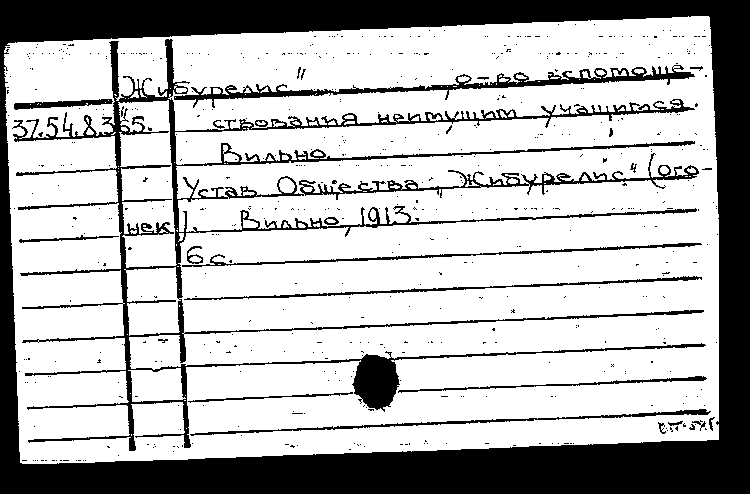 Жибурелис" , о-во вспомоще-
37.54.8.365. ствования неимущим учащимся.
Вильно.
Устав Общества „Жибурелис" (ого-
нек). Вильно, 1913.
6 с.